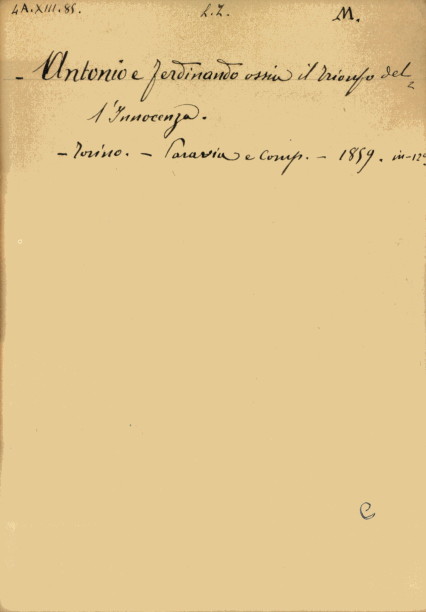 4A.XIII.85. L.Z. M.
- Antonio e Ferdinando ossia il trionfo del=
l'Innocenza.
- Torino. - Paravia e Comp. - 1859. in-12º
C